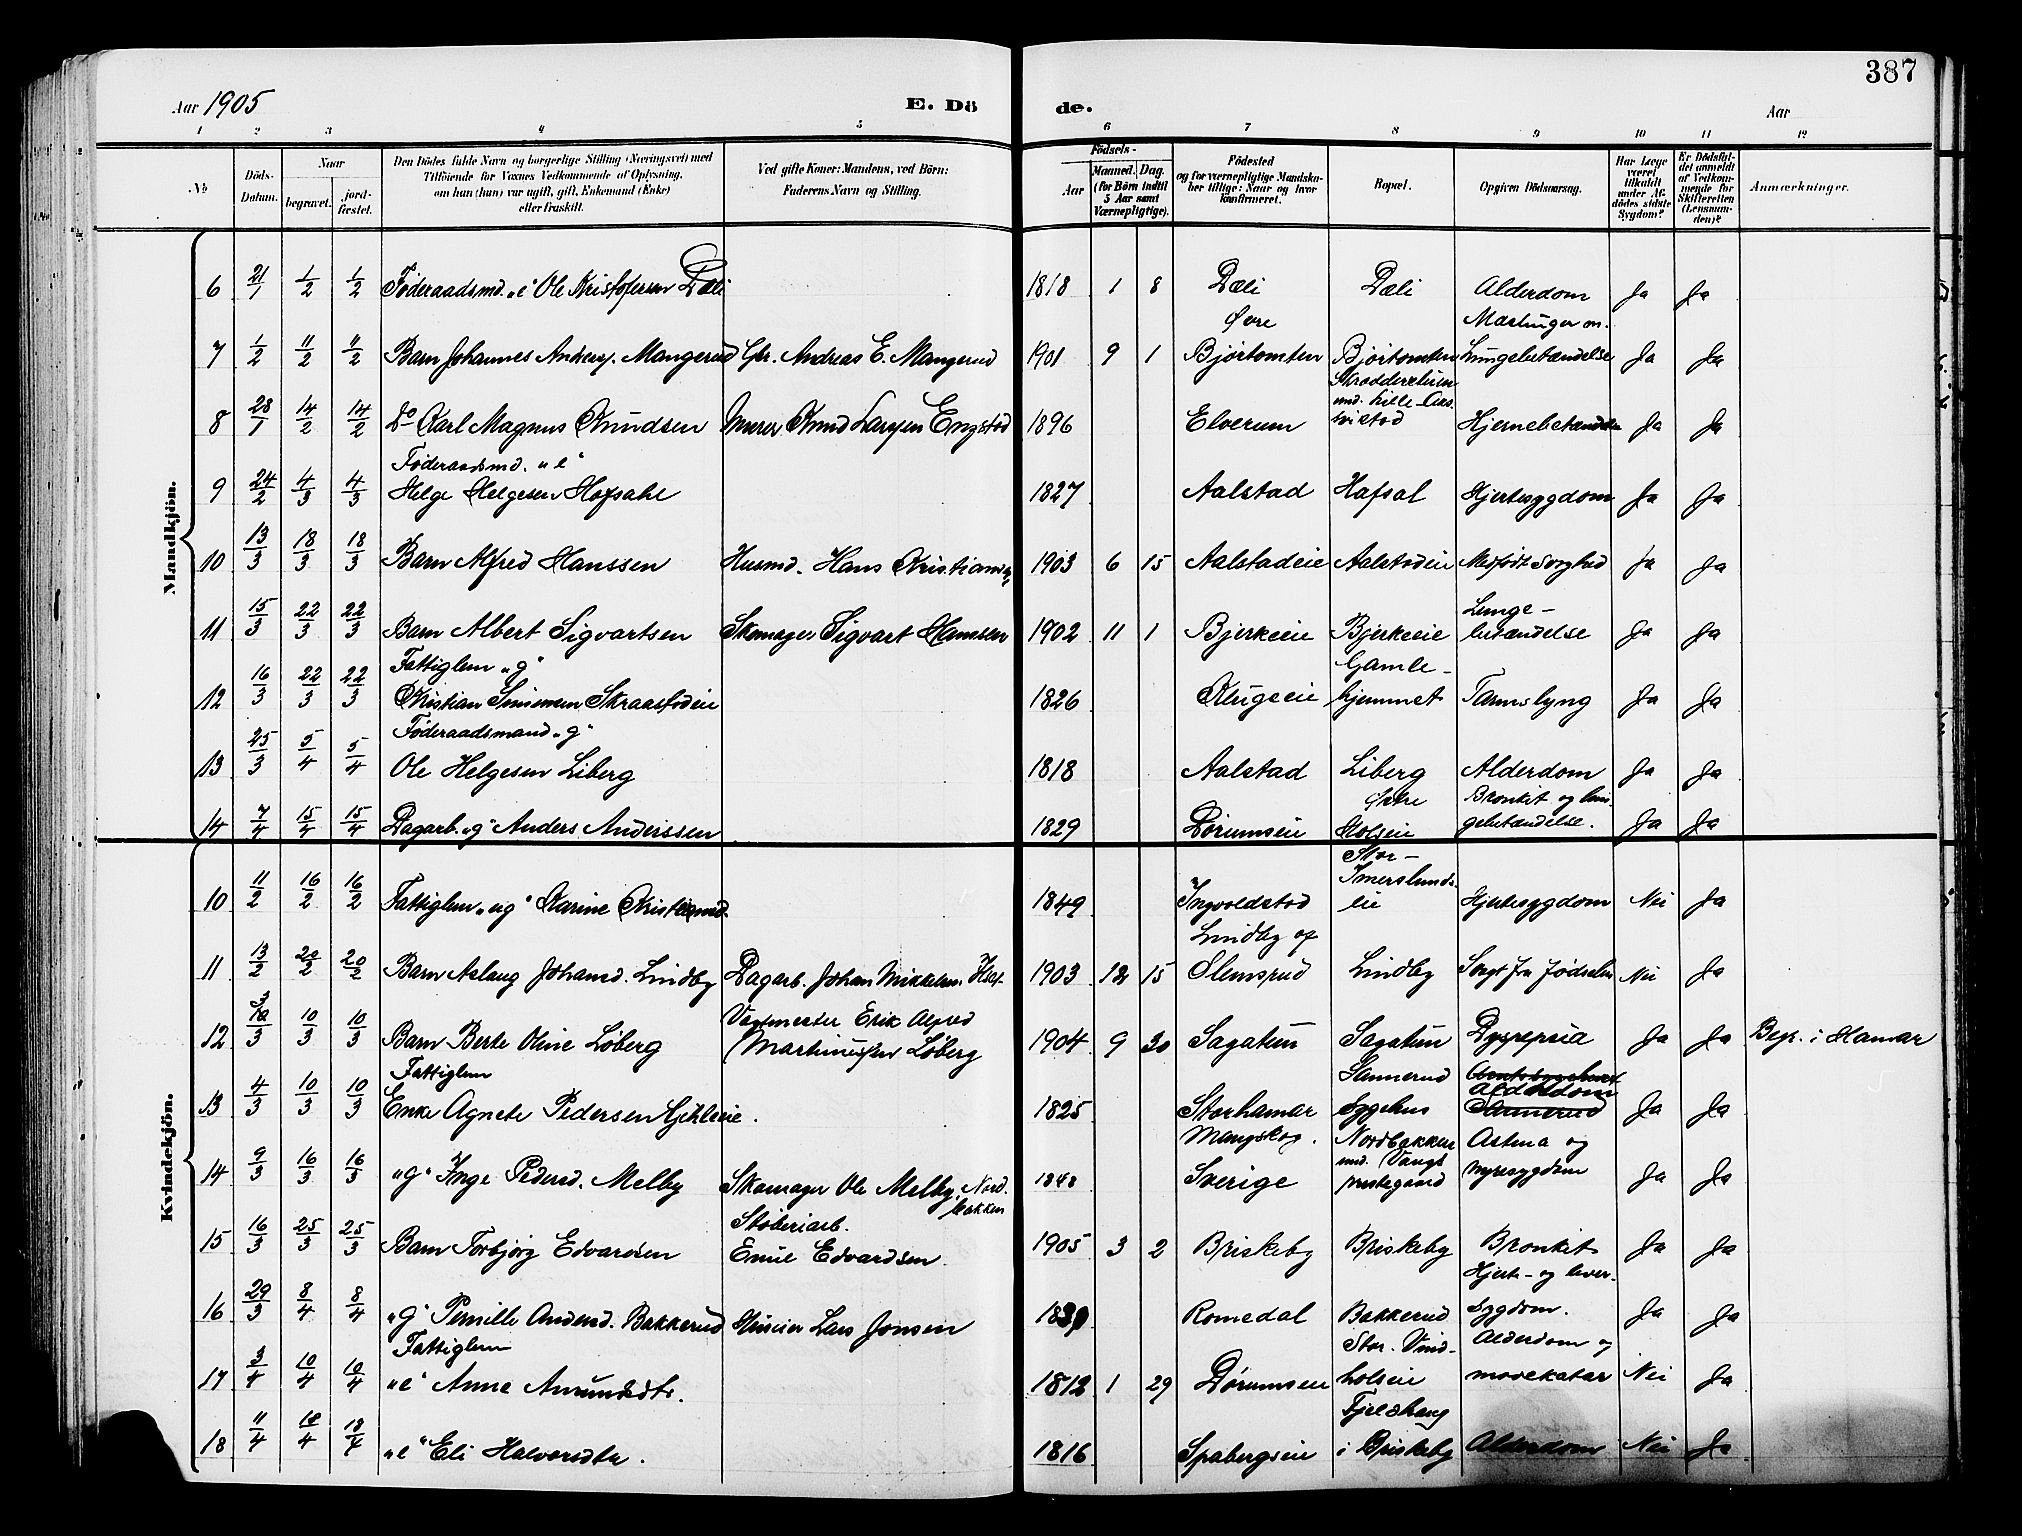 387
Aar 1905
E. Dö
de.
Aar
1 2 3 4 5 6 7 8 9 10 11 12
No
Döds-Datum.
Naar
begravet.
jordfæstet.
Den Dödes fulde Navn og borgerlige Stilling (Næringsvei) med
Tilföiende for Voxnes Vedkommende af Oplysning,
om han (hun) var ugift, gift, Enkemand (Enke)
eller fraskilt.
Ved gifte Koner: Mandens, ved Börn:
Faderens Navn og Stilling.
Födsels-
Aar
Maaned.
Dag.
(for Börn indtil
5 Aar samt
Værnepligtige).
Födested
og for værnepligtige Mandska-
ber tillige: Naar og hvor
konfirmeret.
Bopæl.
Opgiven Dödsaarsag.
Har Læge
været
tilkaldt
under Af-
dödes sidste
Sygdom?
Er Dödsfal-
det anmeldt
af Vedkom-
mende for
Skifteretten
(Lensman-
den)?
Anmærkninger.
Mandkjön.
6 21/1 1/2 1/2 Føderaadsmd. "e" Ole Kristofersen Dæli 1818 1 8 Dæli Dæli Alderdom Ja Ja
7 1/2 11/2 11/2 Barn Johannes Andreas. Mangerud Gbr. Andreas E. Mangerud 1901 9 1 Øvre Bjørtomten Bjørtomten Mæslinger Lungebetændelse Ja Ja
8 28/1 14/2 14/2 Do Karl Magnus Knudsen Murer Knud Larssen Engstad 1896 Elverum Hjernebetændelse Ja Ja
Føderaadsmd. "e"
9 24/2 4/3 4/3 Helge Helgesen Hofsahl 1827 Aalstad Hafsal Hjertesygdom Ja Ja
10 13/3 18/3 18/3 Barn Alfred Hanssen Husmd. Hans Kristians. 1903 6 15 Aalstadeie Aalstadeie Medfødt Svaghed Ja Ja
11 15/3 22/3 22/3 Barn Albert Sigvartsen Skomager Sigvart Hanssen 1902 11 1 Bjerkeeie Bjerkeeie Lunge-betændelse Ja Ja
Fattiglem "g"
12 16/3 22/3 22/3 Kristian Simensen Skraastadeie 1826 Klugseie Gamle-hjemmet Tarmslyng Ja Ja
Føderaadsmand "g"
13 25/3 5/4 5/4 Ole Helgesen Liberg 1818 Aalstad Liberg Alderdom Ja Ja
14 7/4 15/4 15/4 Dagarb. "g" Anders Anderssen 1829 Dørumseie Østre Holseie Bronkit og lun-gebetændelse. Ja Ja
Kvindekjön.
10 11/2 16/2 16/2 Fattiglem "ug" Karine Kristiansd. 1849 Ingvoldstad Stor-Imerslunds-eie Hjertesygdom Nei Ja
11 13/2 20/2 20/2 Barn Aslaug Johansd. Lindby Dagarb. Johan Mikkelsen 1903 12 15 Lindby af Slemsrud Lindby Svagt fra Fødselen Nei Ja
12 10/3 10/3 Barn Berte Oline Løberg Vagtmester Erik Alfred Martinussen Løberg 1904 9 30 Sagatun Sagatun Dyspepsia Ja Ja Begr. i Hamar
Fattiglem
13 4/3 10/3 10/3 Enke Agnete Pedersen Gihleeie. 1825 Storhamar Sannerud Sygehus Alderdom Sannerud Ja Ja
14 9/3 16/3 16/3 "g" Inge Pedersd. Melby Skomager Ole Melby, Nordbakken 1848 Mangskog. Sverige Nordbakken und. Vangs prestegaard Astma og nyresygdom Ja Ja
15 16/3 25/3 25/3 Barn Torbjørg Edvardsen Støberiarb. Emil Edvardsen. 1905 3 2 Briskeby Briskeby Bronkit Ja Ja
16 29/3 8/4 8/4 "g" Pernille Andersd. Bakkerud Lars Jonsen 1839 Romedal Bakkerud Hjerte- og lever-sygdom. Ja Ja
Fattiglem
17 3/4 10/4 10/4 "e" Anne Amundsdtr. 1812 1 29 Dørumseie Stor. Vind-holseie Alderdom og mavekatar Nei Ja
18 11/4 18/4 18/4 "e" Eli Halvorsdtr. 1816 Spabergseie Fjeldhaug i Briskeby Alderdom Nei Ja